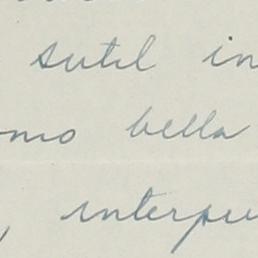 sutil in
omo bella
, interpu